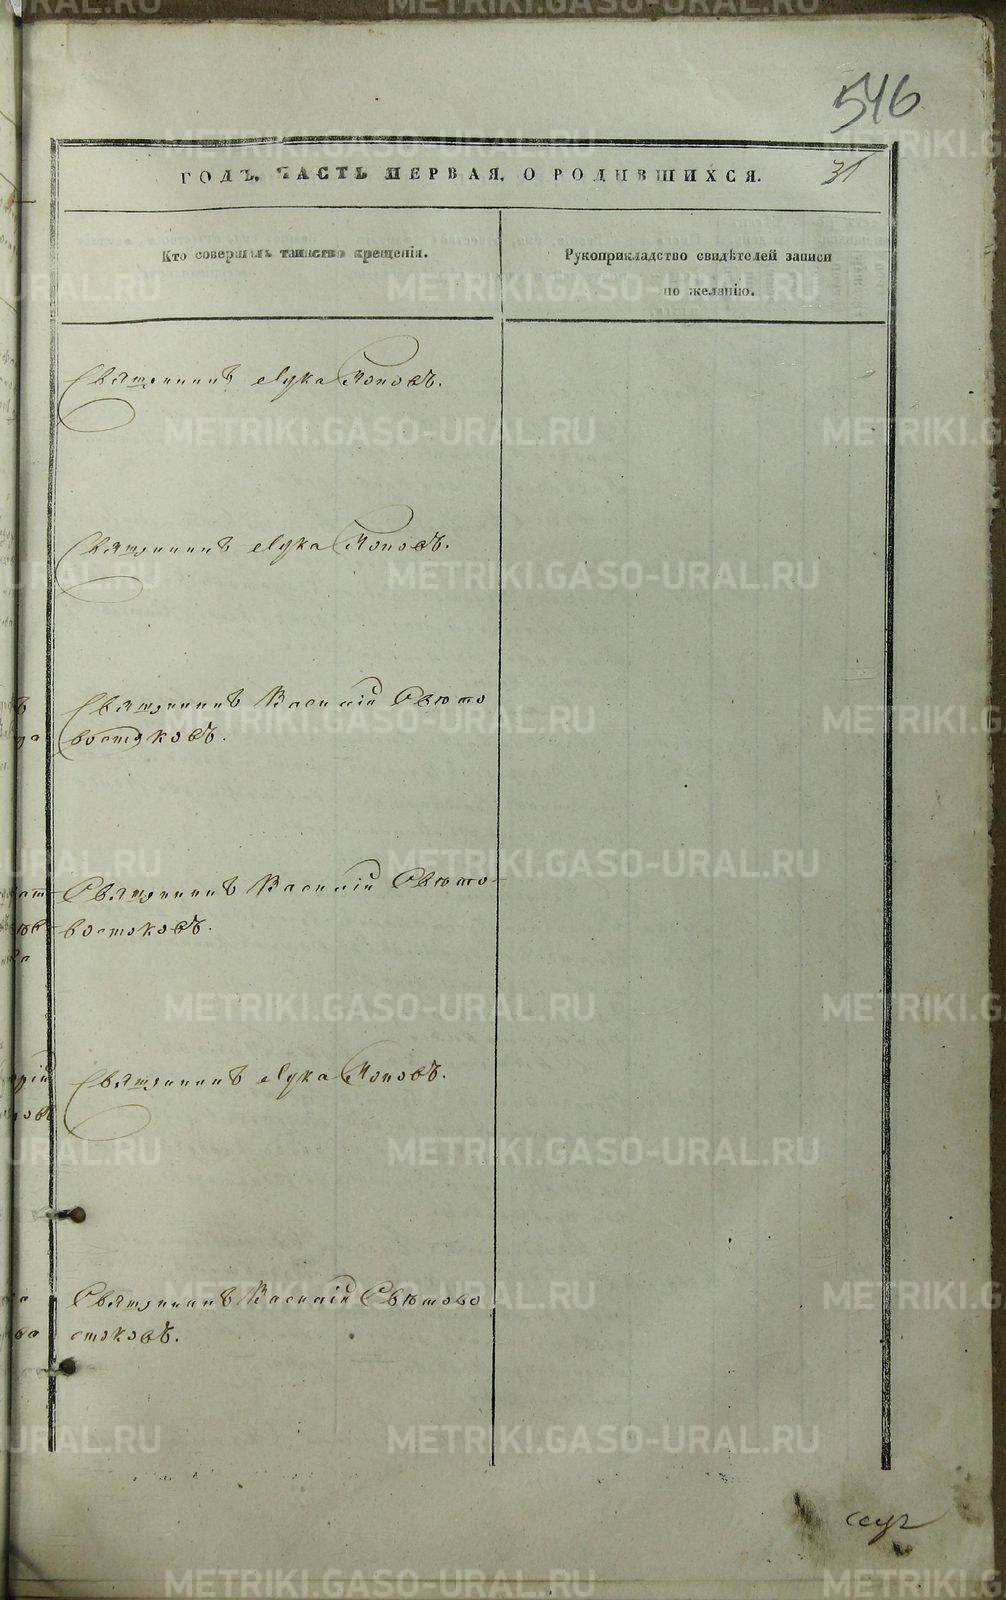 546
ГОДЪ. ЧАСТЬ ПЕРВАЯ. О РОДИВШИХСЯ.
31
Кто совершалъ таинство крещенія.
Рукоприкладство свидѣтелей записи
по желанію.
Священникъ Лука Поповъ.
Священникъ Лука Поповъ.
Священникъ Василій Свѣто
востоковъ.
Священникъ Василій Свѣто-
востоковъ.
Священникъ Лука Поповъ.
Священникъ Василій Свѣтово
стоковъ.
METRIKI.GASO-URAL.RU